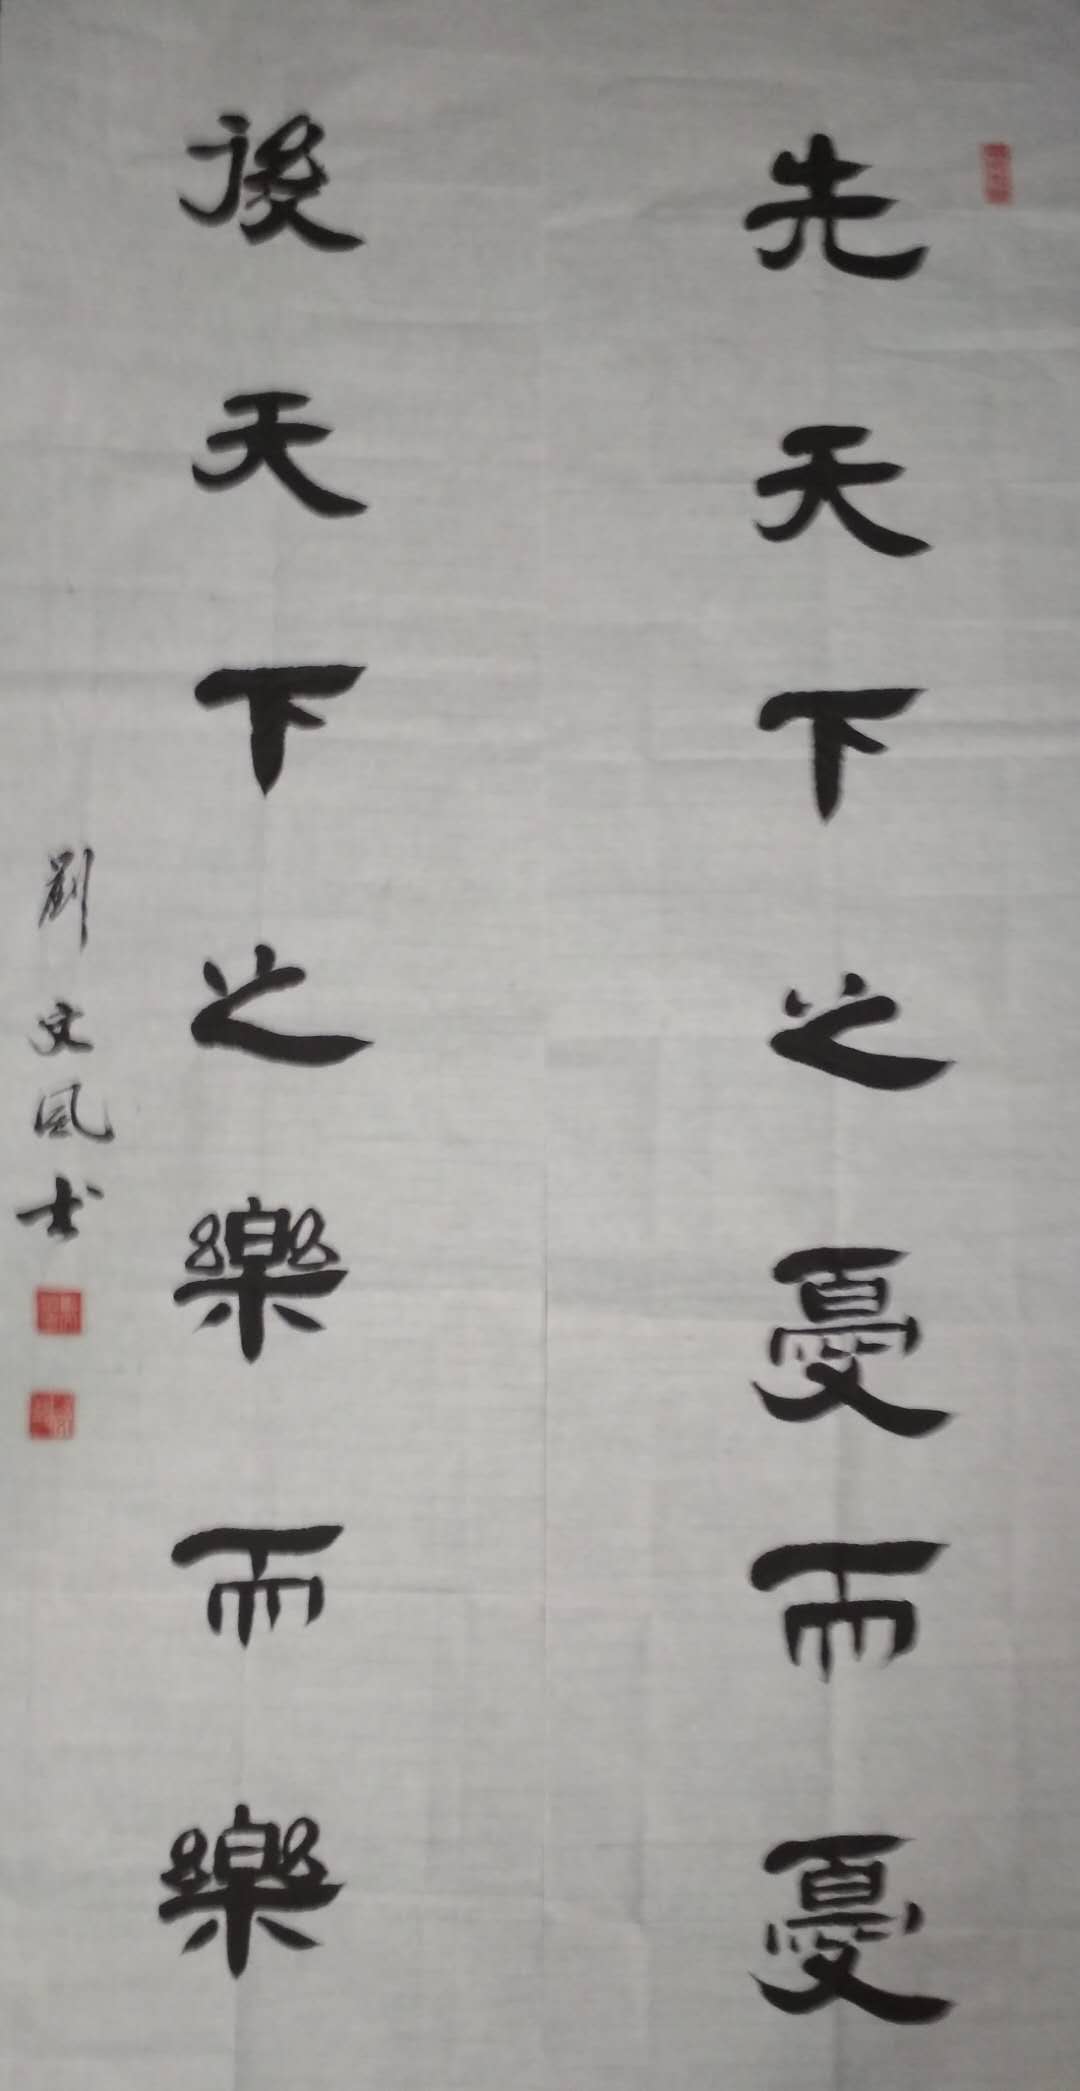 先天下之憂而憂
後天下之樂而樂
劉文風书